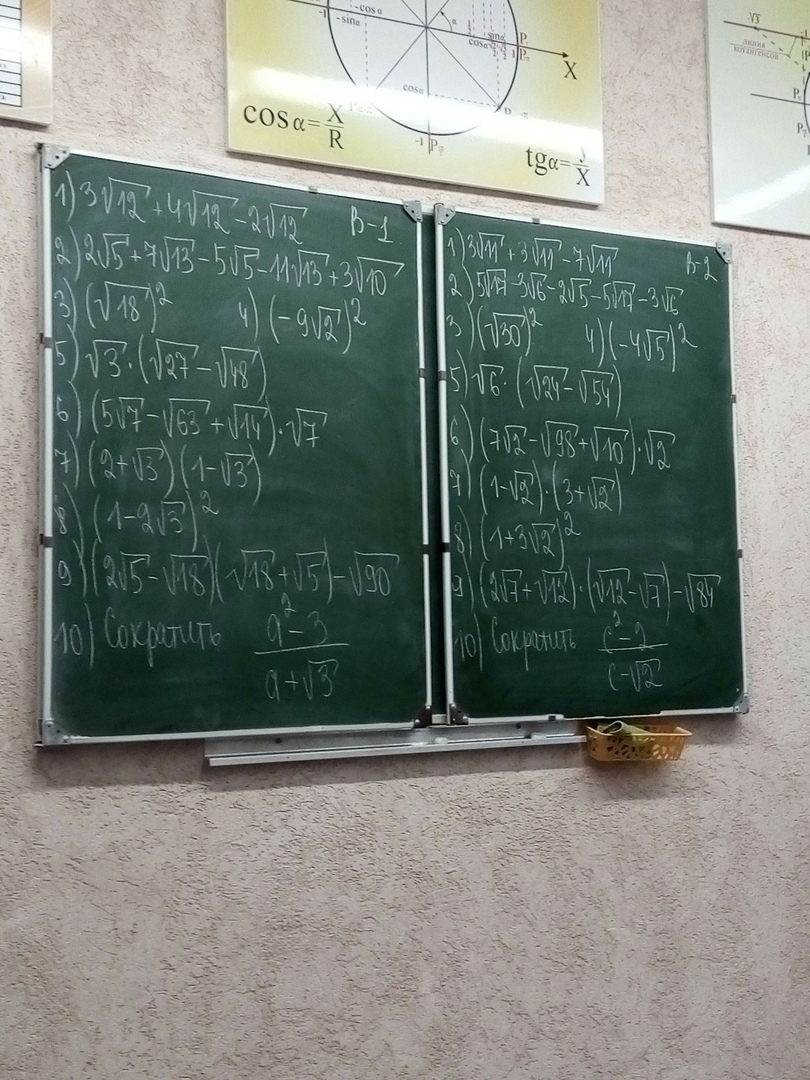 -cosα
-1
-sinα
α
sinα
cosα
X
cosα
-1
cosα = X/R
tgα = y/X
√3
линия
котангенсов
В-1
1) 3√12 + 4√12 - 2√12
2) 2√5 + 7√13 - 5√5 - 11√13 + 3√10
3) (√18)² 4) (-9√2)²
5) √3 · (√27 - √48)
6) (5√7 - √63 + √14) · √7
7) (2+√3)(1-√3)
8) (1-2√3)²
9) (2√5 - √18)(√18 + √5) - √90
10) Сократить (a² - 3)/(a + √3)
В-2
1) 3√11 + 3√11 - 7√11
2) 5√17 - 3√6 - 2√5 - 5√17 - 3√6
3) (√30)² 4) (-4√5)²
5) √6 · (√24 - √54)
6) (7√2 - √98 + √10) · √2
7) (1-√2) · (3+√2)
8) (1+3√2)²
9) (2√7 + √12) · (√12 - √7) - √84
10) Сократить (c² - 2)/(c - √2)